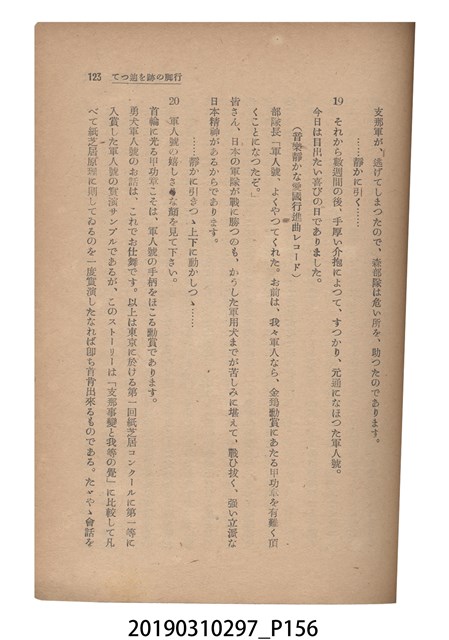 行脚の跡を追つて 123
支那軍が、逃げてしまつたので、森部隊は危い所を、助つたのであります。
……靜かに引く……
19 それから數週間の後、手厚い介抱によつて、すつかり、元通になほつた軍人號。
今日は目出たい喜びの日でありました。
(音樂靜かな愛國行進曲レコード)
部隊長「軍人號、よくやつてくれた。お前は、我々軍人なら、金鵄勳賞にあたる甲功章を有難く頂
くことになつたぞ。
皆さん、日本の軍隊が戰に勝つのも、かうした軍用犬までが苦しみに堪えて、戰ひ拔く、强い立派な
日本精神があるからであります。
……靜かに引きつゝ上下に動かしつゝ……
20 軍人號の嬉しさうな顏を見て下さい。
首輪に光る甲功章こそは、軍人號の手柄をほこる勳賞であります。
勇犬軍人號のお話は、これでお仕舞です。以上は東京に於ける第一回紙芝居コンクールに第一等に
入賞した軍人號の實演サンプルであるが、このストーリーは「支那事變と我等の覺」に比較して凡
べて紙芝居原理に則してゐるのを一度實演したなれば卽ち首肯出來るものである。たゞやゝ會話を
20190310297_P156